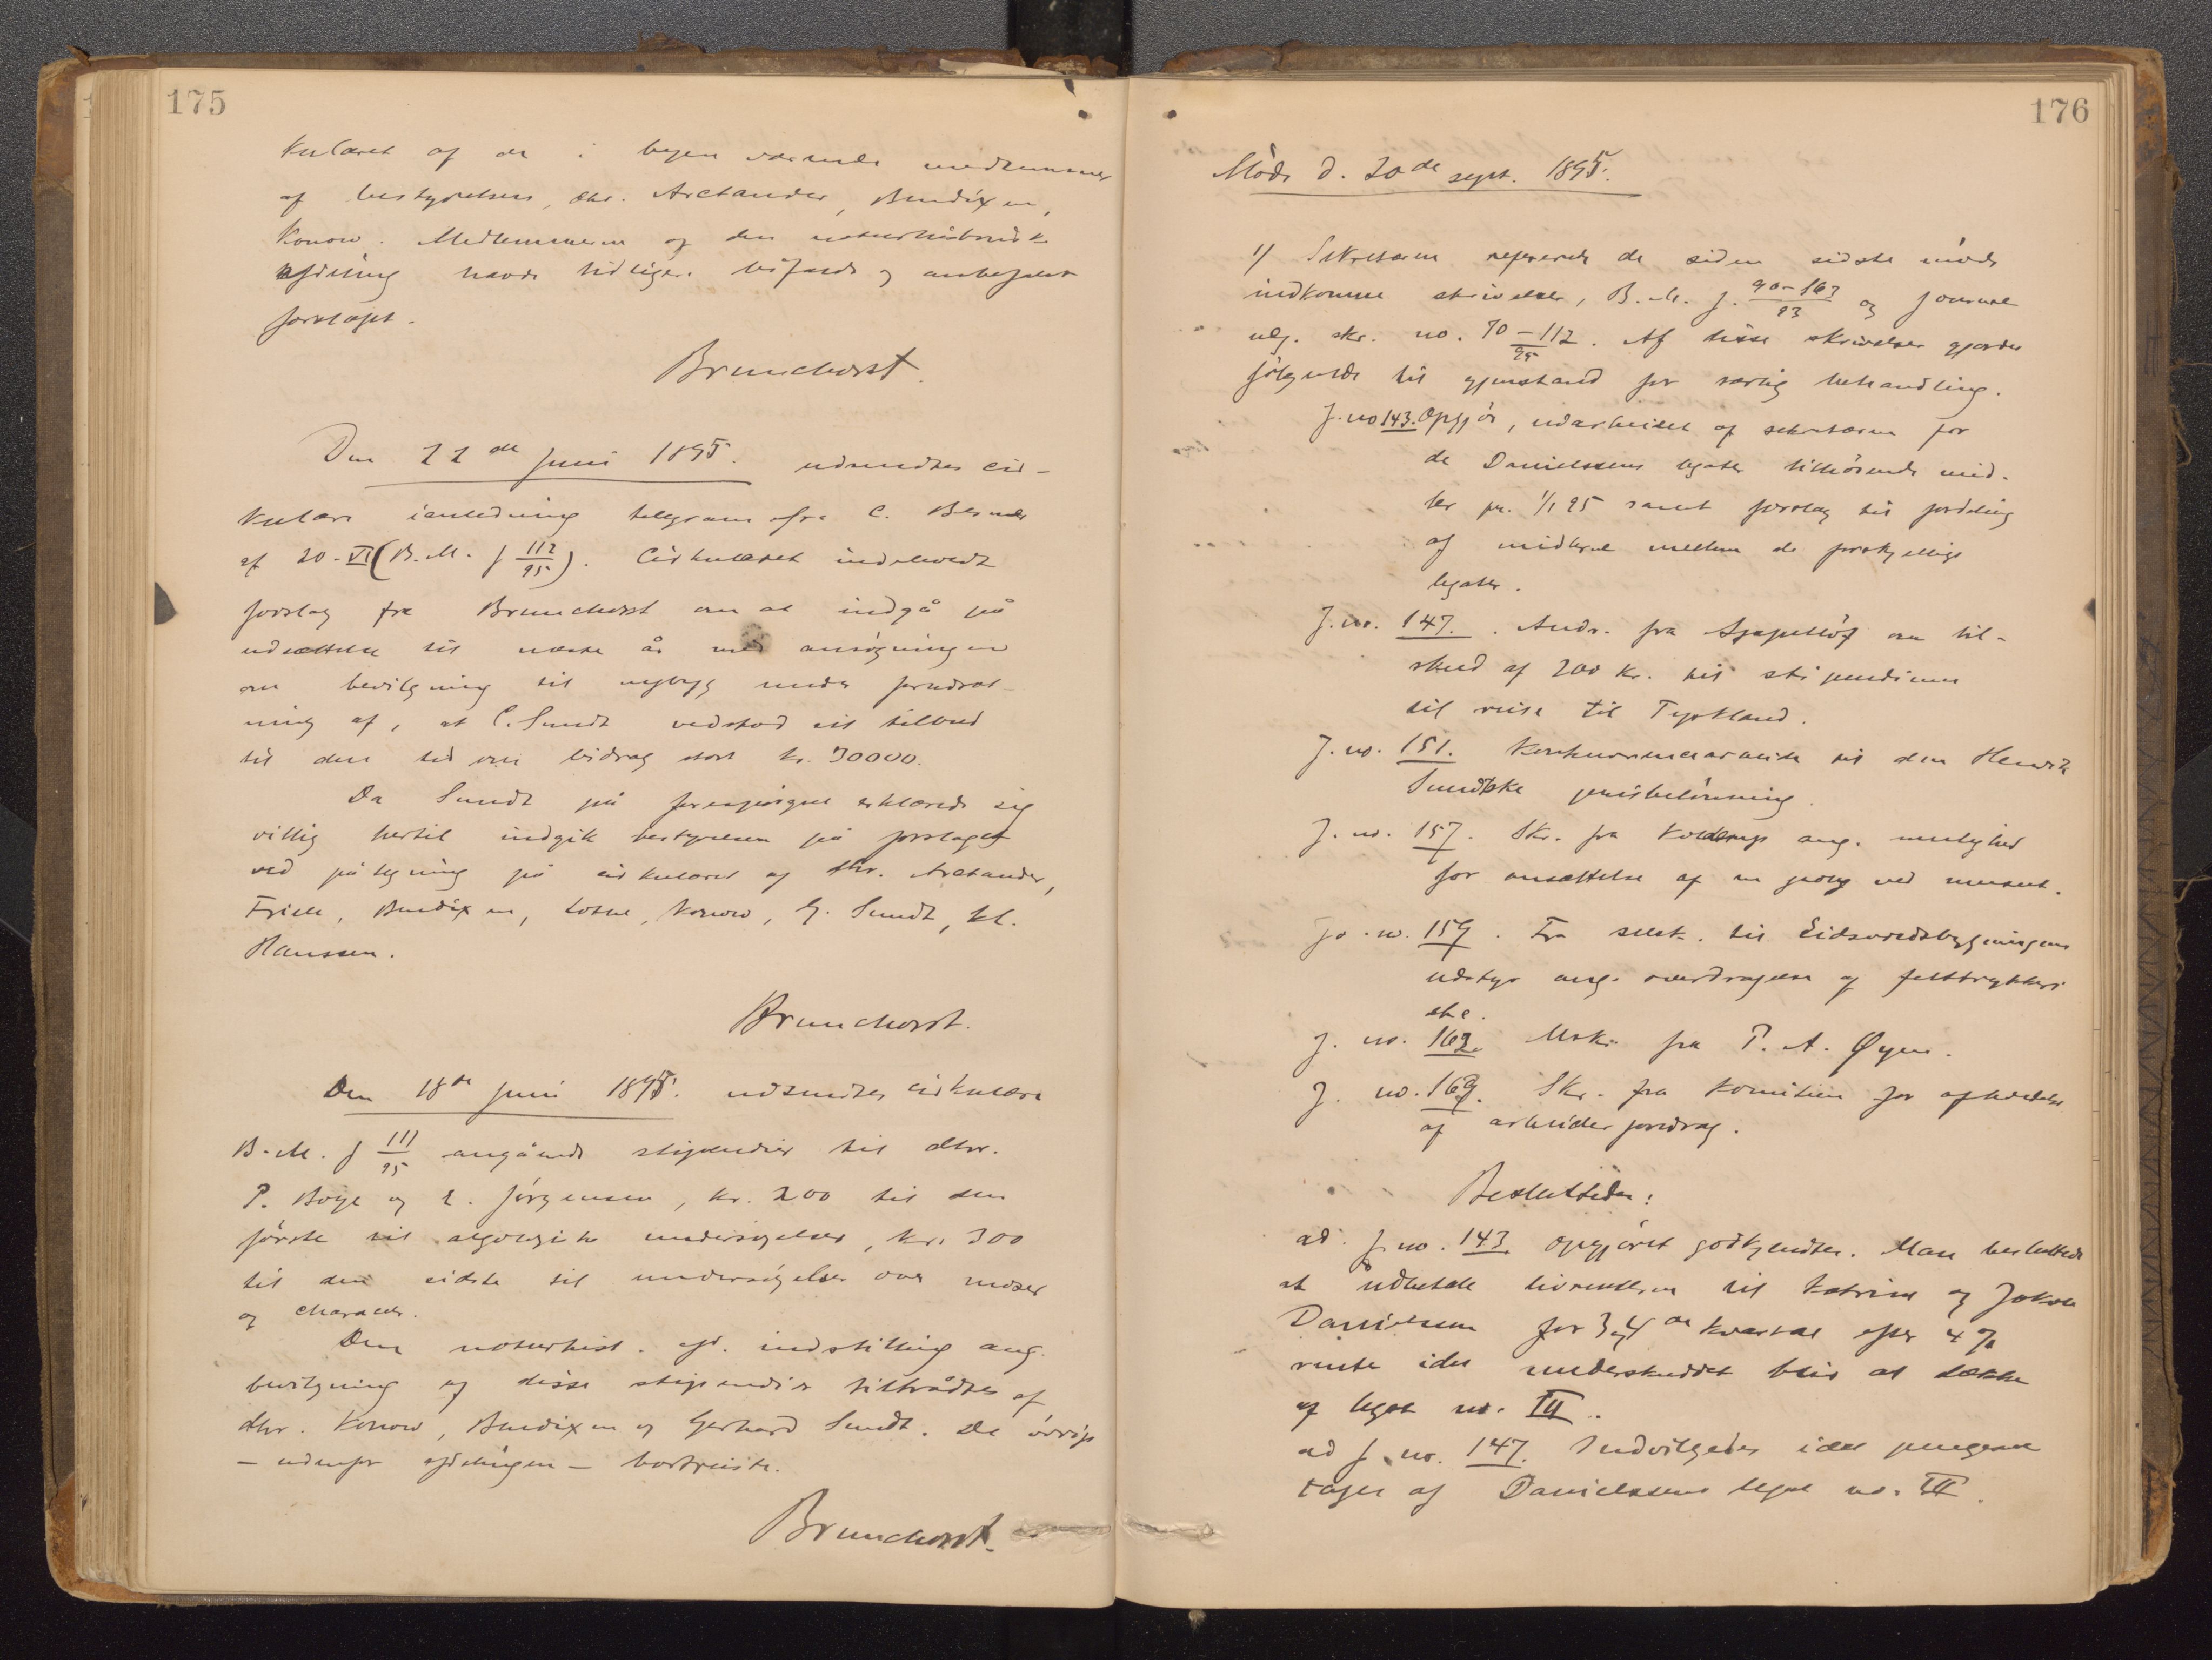 175
kulæret af de i byen værende medlemmer
af bestyrelsen, dhr. Arctander, Bendixen,
Konow. Medlemmerne af den naturhistoriske
afdeling havde tidligere bifaldt og anbefalet
forslaget.
Brunchorst.
Den 22de juni 1895. udsendtes cir-
kulære i anledning telegram fra C. Berner
af 20-VI (B.M. J 112/95). Cirkulæret indeholdt
forslag fra Brunchorst om at indgå på
udsættelse til næste år med ansøgningen
om bevilgning til nybyg under forudsæt-
ning af, at C. Sundt vedstod sit tilbud
til den tid om bidrag stort kr. 30000.
Da Sundt på forespørgsel erklærede sig
villig hertil indgik bestyrelsen på forslaget
ved påtegning på cirkulæret af dhr. Arctander,
Friele, Bendixen, Lothe, Konow, G. Sundt, Kl.
Hanssen.
Brunchorst.
Den 18de juni 1895. udsendtes cirkulære
B.M. J 111/95 angående stipendier til dhr.
P. Boye og E. Jørgensen, kr. 200 til den
første til algologiske undersøgelser, kr. 300
til den sidste til undersøgelser over moser
og characeer.
Den naturhist. afd. indstilling ang.
bevilgning af disse stipendier tiltrådtes af
dhr. Konow, Bendixen og Gerhard Sundt. De øvrige
– udenfor afdelingen – bortreiste.
Brunchorst.
176
Møde d. 20de sept. 1895.
1) Sekretæren refererede de siden sidste møde
indkomne skrivelser, B.M. J. 90–163/93 og journal
udg. skr. no. 70–112/95. Af disse skrivelser gjordes
følgende til gjenstand for særlig behandling.
J. no 143. Opgjør, udarbeidet af sekretæren for
de Danielssens legater tilhørende mid-
ler pr. 1/1 95 samt forslag til fordeling
af midlerne mellem de forskjellige
legater.
J. no. 147. Andr. fra Appelløf om til-
skud af 200 kr. til stipendium
til reise til Tyskland.
J. no. 151. Konkurrencearbeide til den Henrik
Sundtske prisbelønning.
J. no. 157. Skr. fra Kolderup ang. mulighed
for ansættelse af en geolog ved museet.
Jo. no. 159. Fra selsk. til Eidsvoldsbygningens
udstyr ang. overdragelse af felttrykkeri
etc.
J. no. 162. Mskr. fra P. A. Øyen.
J. no. 169. Skr. fra komiteen for afholdelse
af arbeiderforedrag.
Besluttedes:
ad. J. no. 143. Opgjøret godkjendtes. Man besluttede
at udbetale livrenterne til Katrine og Jakob
Danielssen for 3 & 4de kvartal efter 4 %
rente idet underskuddet blir at dække
af legat no. III.
ad J. no. 147. Indvilgedes idet pengene
tages af Danielssens legat no. III.